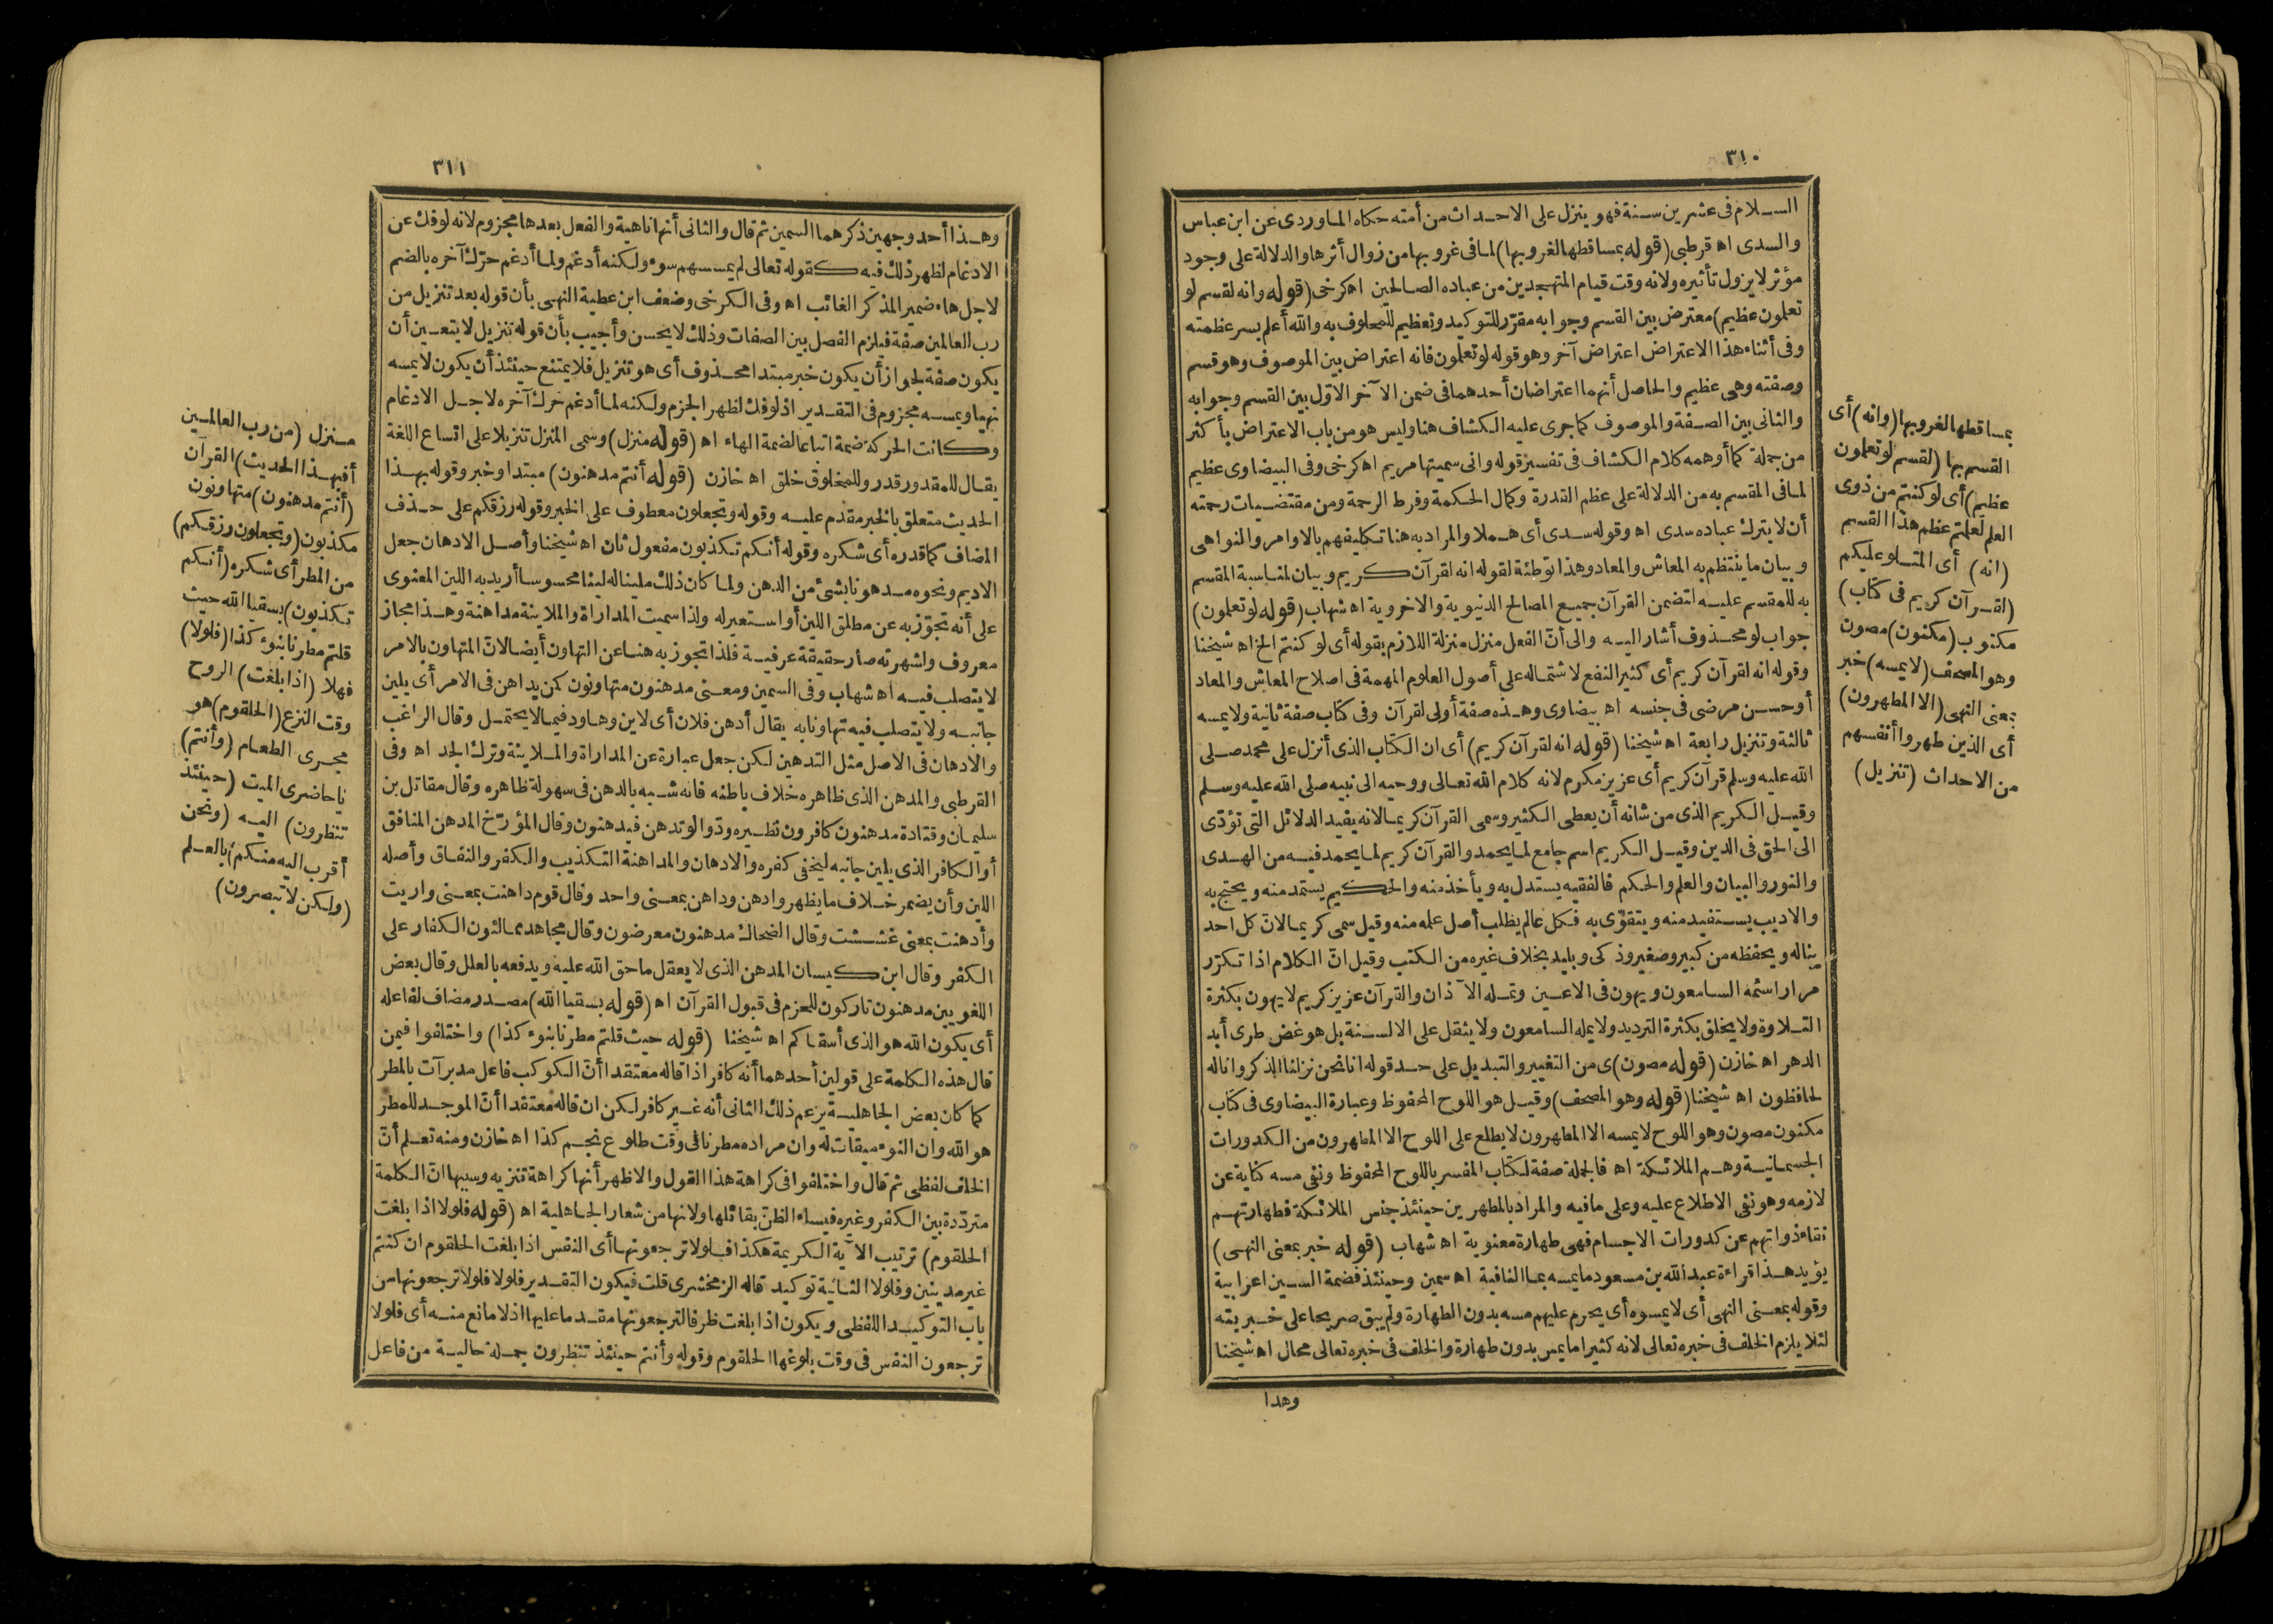 ٣١٠
السلام فى عشرين سنة فهو ينزل على الاحداث من أمته حكاه الماوردى عن ابن عباس
والسدى اه قرطبى (قوله بمساقطها لغروبها) لما فى غروبها من زوال أثرها والدلالة على وجود
مؤثر لا يزول تأثيره ولانه وقت قيام المتهجدين من عباده الصالحين اه كرخى (قوله وانه لقسم لو
تعلمون عظيم) معترض بين القسم وجوابه مقرّر للتوكيد وتعظيم للمحلوف به والله أعلم بسر عظمته
وفى أثناء هذا الاعتراض اعتراض آخر وهو قوله لو تعلمون فانه اعتراض بين الموصوف وهو قسم
وصفته وهى عظيم والحاصل أنهما اعتراضان أحدهما فى ضمن الآخر الاوّل بين القسم وجوابه
والثانى بين الصفة والموصوف كما جرى عليه الكشاف هنا وليس هو من باب الاعتراض بأكثر
من جملة كما أوهمه كلام الكشاف فى تفسير قوله وانى سميتها مريم اه كرخى وفى البيضاوى عظيم
لما فى المقسم به من الدلالة على عظم القدرة وكمال الحكمة وفرط الرحمة ومن مقتضيات رحمته
أن لا يترك عباده سدى اه وقوله سدى أى هملا والمراد به هنا تكليفهم بالاوامر والنواهى
وبيان ما ينتظم به المعاش والمعاد وهذا توطئة لقوله انه لقرآن كريم وبيان لمناسبة المقسم
به للمقسم عليه لتضمن القرآن جميع المصالح الدنيوية والاخروية اه شهاب (قوله لو تعلمون)
جواب لو محذوف أشار اليه والى أنّ الفعل منزل منزلة اللازم بقوله أى لو كنتم الخ اه شيخنا
وقوله انه لقرآن كريم أى كثير النفع لاشتماله على أصول العلوم المهمة فى اصلاح المعاش والمعاد
أو حسن مرضى فى جنسه اه بيضاوى وهذه صفة أولى لقرآن وفى كتاب صفة ثانية ولا يمسه
ثالثة وتنزيل رابعة اه شيخنا (قوله انه لقرآن كريم) أى ان الكتاب الذى أنزل على محمد صلى
الله عليه وسلم قرآن كريم أى عزيز مكرم لانه كلام الله تعالى ووحيه الى نبيه صلى الله عليه وسلم
وقيل الكريم الذى من شانه أن يعطى الكثير وسمى القرآن كريما لانه يفيد الدلائل التى تؤدّى
الى الحق فى الدين وقيل الكريم اسم جامع لما يحمد والقرآن كريم لما يحمد فيه من الهدى
والنور والبيان والعلم والحكم فالفقيه يستدل به ويأخذ منه والحكيم يستمد منه ويحتج به
والاديب يستفيد منه ويتقوّى به فكل عالم يطلب أصل علمه منه وقيل سمى كريما لان كل احد
يناله ويحفظه من كبير وصغير وذكى وبليد بخلاف غيره من الكتب وقيل انّ الكلام اذا تكرّر
مرارا سئمه السامعون ويهون فى الاعين وتمله الآذان والقرآن عزيز كريم لا يهون بكثرة
التلاوة ولا يخلق بكثرة الترديد ولا يمله السامعون ولا يثقل على الالسنة بل هو غض طرى أبد
الدهر اه خازن (قوله مصون) ى من التغيير والتبديل على حد قوله انا نحن نزلنا الذكر وانا له
لحافظون اه شيخنا (قوله وهو المصحف) وقيل هو اللوح المحفوظ وعبارة البيضاوى فى كتاب
مكنون مصون وهو اللوح لا يمسه الا المطهرون لا يطلع على اللوح الا المطهرون من الكدورات
الجسمانية وهم الملائكة اه فالجملة صفة لكتاب المفسر باللوح المحفوظ ونفى مسه كناية عن
لازمه وهو نفى الاطلاع عليه وعلى ما فيه والمراد بالمطهرين حينئذ جنس الملائكة فطهارتهم
نقاء ذواتهم عن كدورات الاجسام فهى طهارة معنوية اه شهاب (قوله خبر بمعنى النهى)
يؤيد هذا قراءة عبد الله بن مسعود ما يمسه بما النافية اه سمين وحينئذ فضمة السين اعرابية
وقوله بمعنى النهى أى لا يمسوه أى يحرم عليهم مسه بدون الطهارة ولم يبق صريحا على خبريته
لئلا يلزم الخلف فى خبره تعالى لانه كثيرا ما يمس بدون طهارة والخلف فى خبره تعالى محال اه شيخنا
وهذا
بمساقطها لغروبها (وانه) أى
القسم بها (لقسم لو تعلمون
عظيم) أى لو كنتم من ذوى
العلم لعلمتم عظم هذا القسم
(انه) أى المتلو عليكم
(لقرآن كريم فى كتاب)
مكتوب (مكنون) مصون
وهو المصحف (لا يمسه) خبر
بمعنى النهى (الا المطهرون)
أى الذين طهروا أنفسهم
من الاحداث (تنزيل)
٣١١
وهذا أحد وجهين ذكرهما السمين ثم قال والثانى أنها ناهية والفعل بعدها مجزوم لانه لو فك عن
الادغام لظهر ذلك فيه كقوله تعالى لم يمسسهم سوء ولكنه أدغم ولما أدغم حرّك آخره بالضم
لاجل هاء ضمير المذكر الغائب اه وفى الكرخى وضعف ابن عطية النهى بأن قوله بعد تنزيل من
رب العالمين صفة فيلزم الفصل بين الصفات وذلك لا يحسن وأجيب بأن قوله تنزيل لا يتعين أن
يكون صفة لجواز أن يكون خبر مبتدا محذوف أى هو تنزيل فلا يمتنع حينئذ أن يكون لا يمسه
نهيا ويمسه مجزوم فى التقدير اذ لو فك لظهر الجزم ولكنه لما أدغم حرك آخره لاجل الادغام
وكانت الحركة ضمة اتباعا لضمة الهاء اه (قوله منزل) وسمى المنزل تنزيلا على اتساع اللغة
يقال للمقدور قدر وللمخلوق خلق اه خازن (قوله أنتم مدهنون) مبتدا وخبر وقوله بهذا
الحديث متعلق بالخبر مقدم عليه وقوله وتجعلون معطوف على الخبر وقوله رزقكم على حذف
المضاف كما قدره أى شكره وقوله أنكم تكذبون مفعول ثان اه شيخنا وأصل الادهان جعل
الاديم ونحوه مدهونا بشئ من الدهن ولما كان ذلك ملينا له لينا محسوسا أريد به اللين المعنوى
على أنه تجوّز به عن مطلق اللين أو استعير له ولذا سميت المداراة والملاينة مداهنة وهذا مجاز
معروف واشهرته صار حقيقة عرفية فلذا تجوز به هنا عن التهاون أيضا لانّ المتهاون بالامر
لا يتصلب فيه اه شهاب وفى السمين ومعنى مدهنون متهاونون كمن يداهن فى الامر أى يلين
جانبه ولا يتصلب فيه تهاونا به يقال أدهن فلان أى لاين وهاود فيما لا يحتمل وقال الراغب
والادهان فى الاصل مثل التدهين لكن جعل عبارة عن المداراة والملاينة وترك الجد اه وفى
القرطبى والمدهن الذى ظاهره خلاف باطنه فانه شبه بالدهن فى سهولة ظاهره وقال مقاتل بن
سليمان وقتادة مدهنون كافرون نظيره ودّوا لو تدهن فيدهنون وقال المؤرّخ المدهن المنافق
أو الكافر الذى يلين جانبه ليخفى كفره والادهان والمداهنة التكذيب والكفر والنفاق وأصله
اللين وأن يضمر خلاف ما يظهر وادهن وداهن بمعنى واحد وقال قوم داهنت بمعنى واريت
وأدهنت بمعنى غششت وقال الضحاك مدهنون معرضون وقال مجاهد ممالئون الكفار على
الكفر وقال ابن كيسان المدهن الذى لا يعقل ما حق الله عليه ويدفعه بالعلل وقال بعض
اللغويين مدهنون تاركون للجزم فى قبول القرآن اه (قوله بسقيا الله) مصدر مضاف لفاعله
أى يكون الله هو الذى أسقاكم اه شيخنا (قوله حيث قلتم مطرنا بنوء كذا) واختلفوا فيمن
قال هذه الكلمة على قولين أحدهما أنه كافر اذا قاله معتقدا أنّ الكوكب فاعل مدبر آت بالمطر
كما كان بعض الجاهلية يزعم ذلك الثانى أنه غير كافر لكن ان قاله معتقدا أنّ الموجد للمطر
هو الله وان النوء ميقات له وان مراده مطرنا فى وقت طلوع نجم كذا اه خازن ومنه تعلم أنّ
الخلف لفظى ثم قال واختلفوا فى كراهة هذا القول والاظهر أنها كراهة تنزيه وسببها انّ الكلمة
متردّدة بين الكفر وغيره فيساء الظنّ بقائلها ولانها من شعار الجاهلية اه (قوله فلولا اذا بلغت
الحلقوم) ترتيب الآية الكريمة هكذا فلولا ترجعونها أى النفس اذا بلغت الحلقوم ان كنتم
غير مدينين وفلولا الثانية توكيد قاله الزمخشرى قلت فيكون التقدير فلولا فلولا ترجعونها من
باب التوكيد اللفظى ويكون اذا بلغت ظرفا لترجعونها مقدما عليها اذ لا مانع منه أى فلولا
ترجعون النفس فى وقت بلوغها الحلقوم وقوله وأنتم حينئذ تنظرون جملة حالية من فاعل
منزل (من رب العالمين
أفبهذا الحديث) القرآن
(أنتم مدهنون) متهاونون
مكذبون (وتجعلون رزقكم)
من المطر أى شكره (أنكم
تكذبون) بسقيا الله حيث
قلتم مطرنا بنوء كذا (فلولا)
فهلا (اذا بلغت) الروح
وقت النزع (الحلقوم) هو
مجرى الطعام (وأنتم)
ياحاضرى الميت (حينئذ
تنظرون) اليه (ونحن
أقرب اليه منكم) بالعلم
(ولكن لا تبصرون)